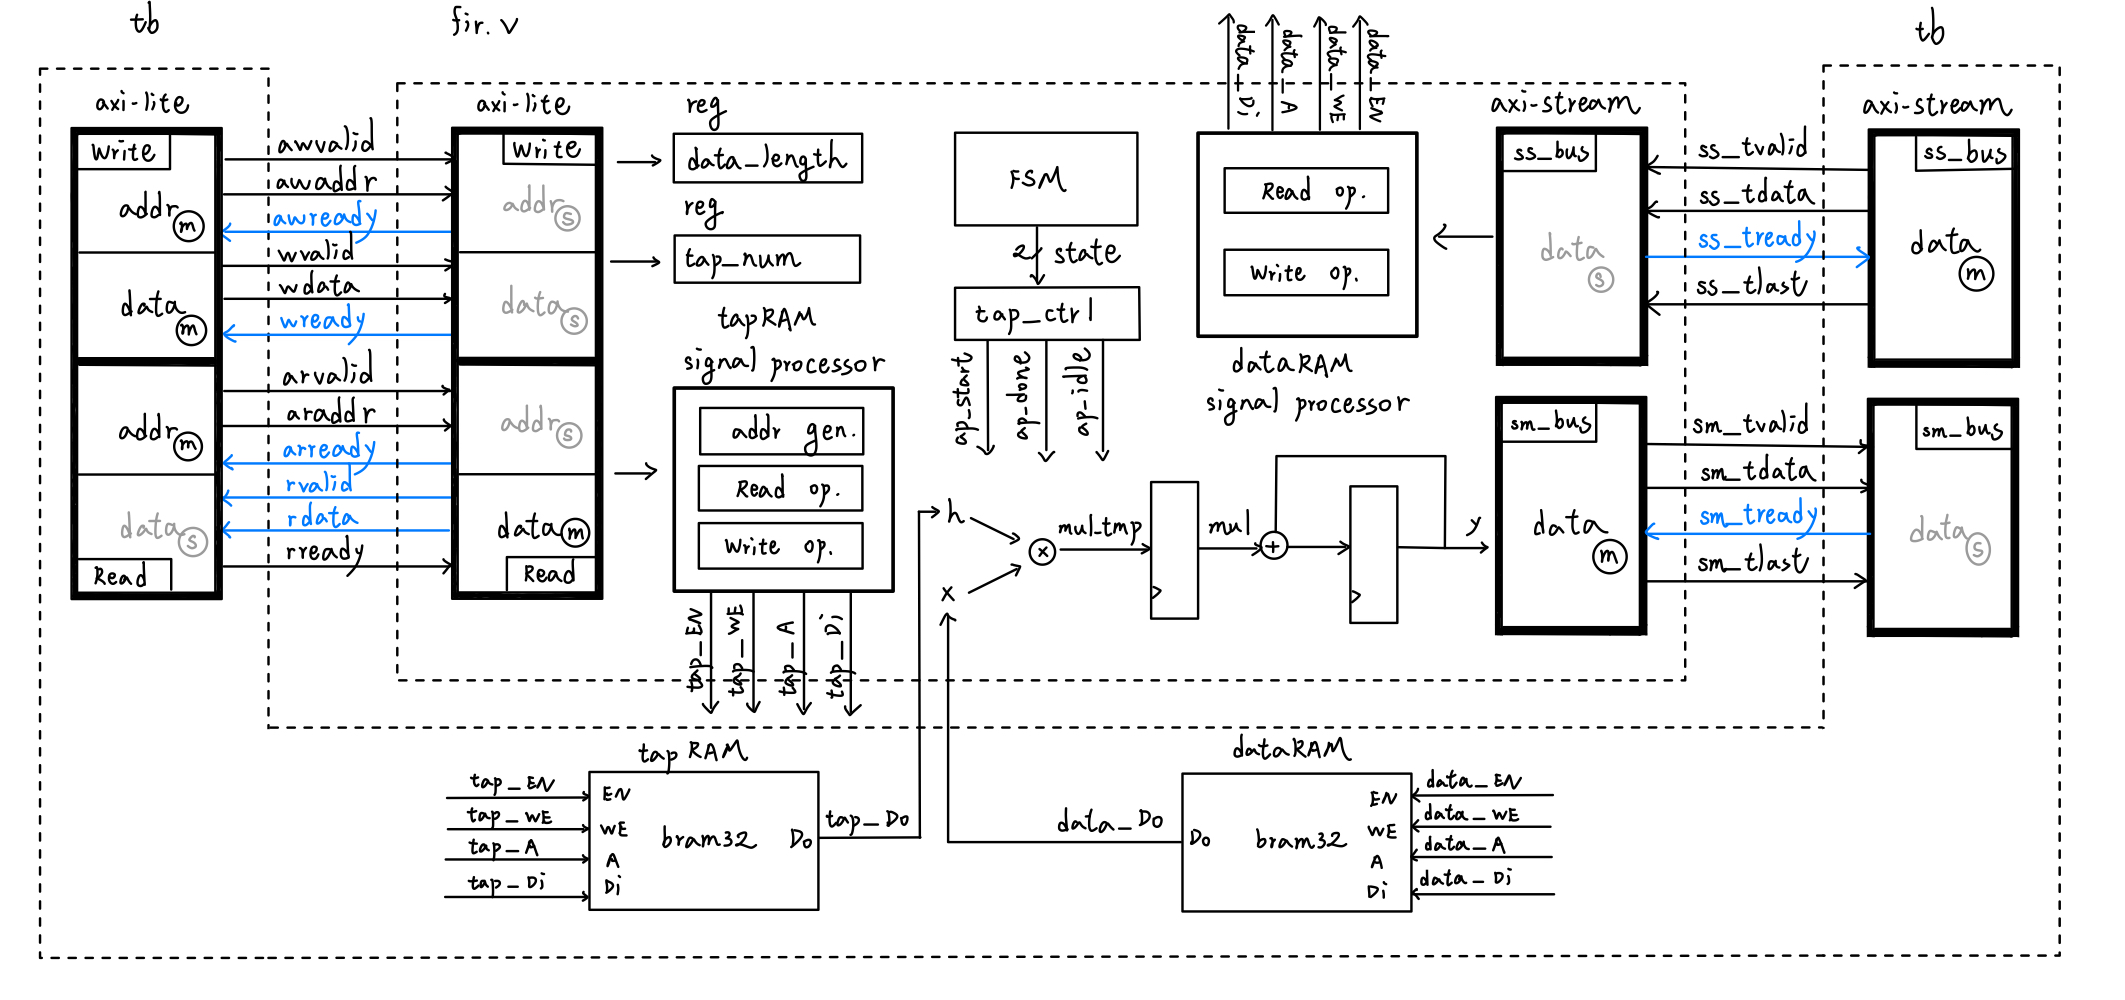 tb
fir.v
tb
axi-lite
Write
addr m
data m
addr m
data s
Read
awvalid
awaddr
awready
wvalid
wdata
wready
arvalid
araddr
arready
rvalid
rdata
rready
axi-lite
Write
addr s
data s
addr s
data m
Read
reg
data_length
reg
tap_num
tapRAM
signal processor
addr gen.
Read op.
Write op.
tap_EN
tap_WE
tap_A
tap_Di
FSM
2 state
tap_ctrl
ap_start
ap_done
ap_idle
data_Di
data_A
data_WE
data_EN
Read op.
Write op.
dataRAM
signal processor
h
x
×
mul_tmp
mul
+
y
axi-stream
ss_bus
data s
sm_bus
data m
ss_tvalid
ss_tdata
ss_tready
ss_tlast
sm_tvalid
sm_tdata
sm_tready
sm_tlast
axi-stream
ss_bus
data m
sm_bus
data s
tap RAM
tap_EN
tap_WE
tap_A
tap_Di
EN
WE
A
Di
bram32
Do
tap_Do
dataRAM
data_Do
Do
bram32
EN
WE
A
Di
data_EN
data_WE
data_A
data_Di